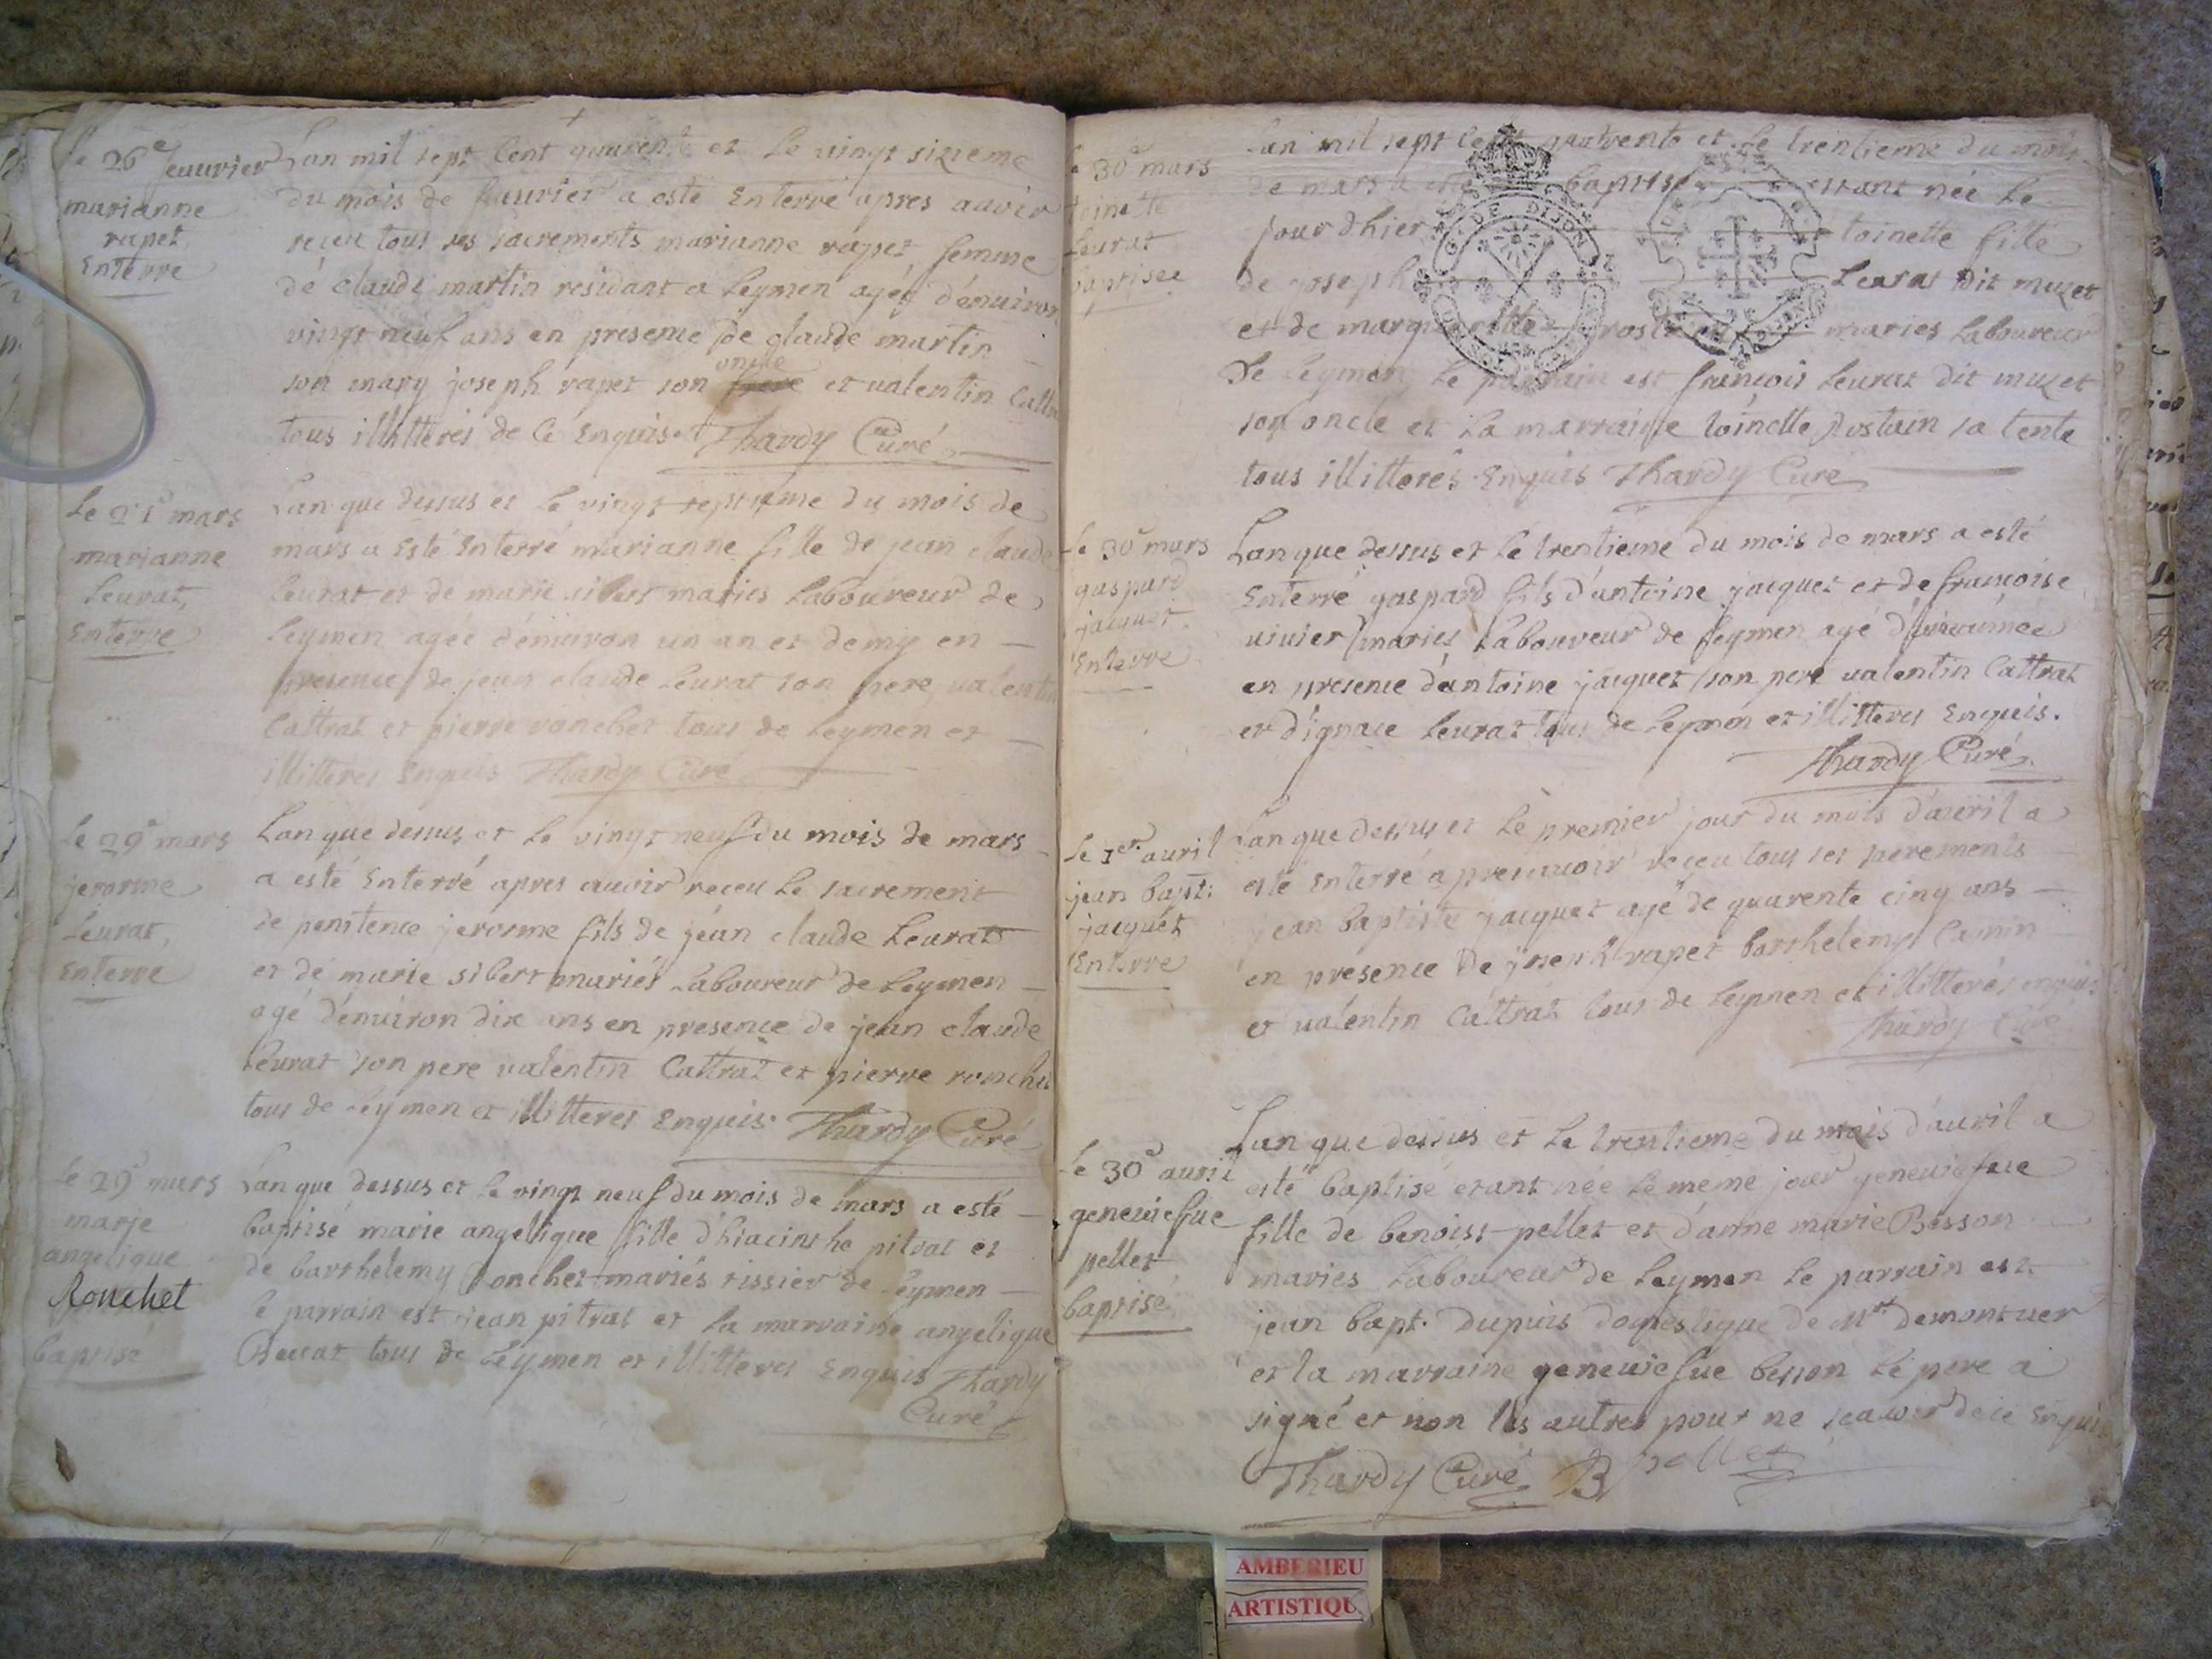 le 26e feuurier
marianne
rapet
Enterre
Lan mil sept Cent quarente et Le vingt sixeme
du mois de feuurier a esté Enterré apres auoir
receu tous ses sacrements marianne rapet femme
dé claude martin residant a Leymen agéé d'enuiron
vingt neuf ans en presence de claude martin
son mary joseph rapet son oncle et ualentin Cattrat
tous illitterés de Ce Enquis Thardy Curé
Le mars
marianne
Leurat
Enterre
Lan que dessus et Le vingt septieme du mois de
mars a Esté Enterré marianne fille de jean claude
Leurat et de marie sibert mariés Laboureur de
Leymen agéé d'enuiron un an et demy en
presence de jean claude Leurat son pere valentin
Cattrat et pierre ronchet tous de Leymen et
illitteres Enquis Thardy Curé
Le 29e mars
jerorme
Leurat
Enterre
Lan que dessus et Le vingt neuf du mois de mars
a esté Enterré apres auoir receu Le sacrement
de penitence jerorme fils de jean claude Leurat
et de marie sibert mariés Laboureur de Leymen
agé d'enuiron dix ans en presence de jean claude
Leurat son pere valentin Cattrat et pierre ronchet
tous de Leymen et illitteres Enquis Thardy Curé
Le 29e mars
marie
angelique
Ronchet
baptisé
Lan que dessus et Le vingt neuf du mois de mars a esté
baptisé marie angelique fille d'hiacinthe pitrat et
de barthelemy Ronchet mariés tissier de Leymen
le parrain est jean pitrat et La marraine angelique
tous de Leymen et illitteres Enquis Thardy
Curé
Le 30e mars
toinette
Leurat
baptisee
Lan mil sept Cent quatrente et Le trentieme du mois
de mars a esté baptisé estant née Le
jour d'hier toinette fille
DE DIJON
de joseph Leurat dit muzet
et de margueritte mariés Laboureur
de Leymen Le parrain est francois Leurat dit muzet
son oncle et La marraine toinette Rostain sa tente
tous illitterés Enquis Thardy Curé
Le 30e mars
gaspard
jacquet
Enterre
Lan que dessus et Le trentieme du mois de mars a esté
Enterré gaspard fils d'antoine jacquet et de francoise
uiuier mariés Laboureur de Leymen agé
en presence d'antoine jacquet son pere valentin Cattrat
et d'ignace Leurat tous de Leymen et illitteres Enquis.
Thardy Curé
Le 1er auril
jean bapt:
jacquet
Enterre
Lan que dessus et Le premier jour du mois d'auril a
esté Enterré apres auoir receu tous ses
jean baptiste jacquet agé de quarente cinq ans
en présence de joseph rapet barthelemy
et ualentin Cattrat tous de Leymen et illitterés enquis
Thardy Curé
Le 30e auril
geneuiefue
pellet
baptisé
Lan que dessus et Le trentieme du mois d'auril a
esté baptisé etant née Le meme jour geneuiefue
fille de benoist pellet et d'anne marie Besson
mariés Laboureur de Leymen Le parrain est
jean bapt. Dupuis domestique de Mr demontuer
et la marraine geneuiefue besson Le pere a
signé et non les autres pour ne scauoir de ce Enquis
Thardy Curé B pellet
AMBERIEU
ARTISTIQU